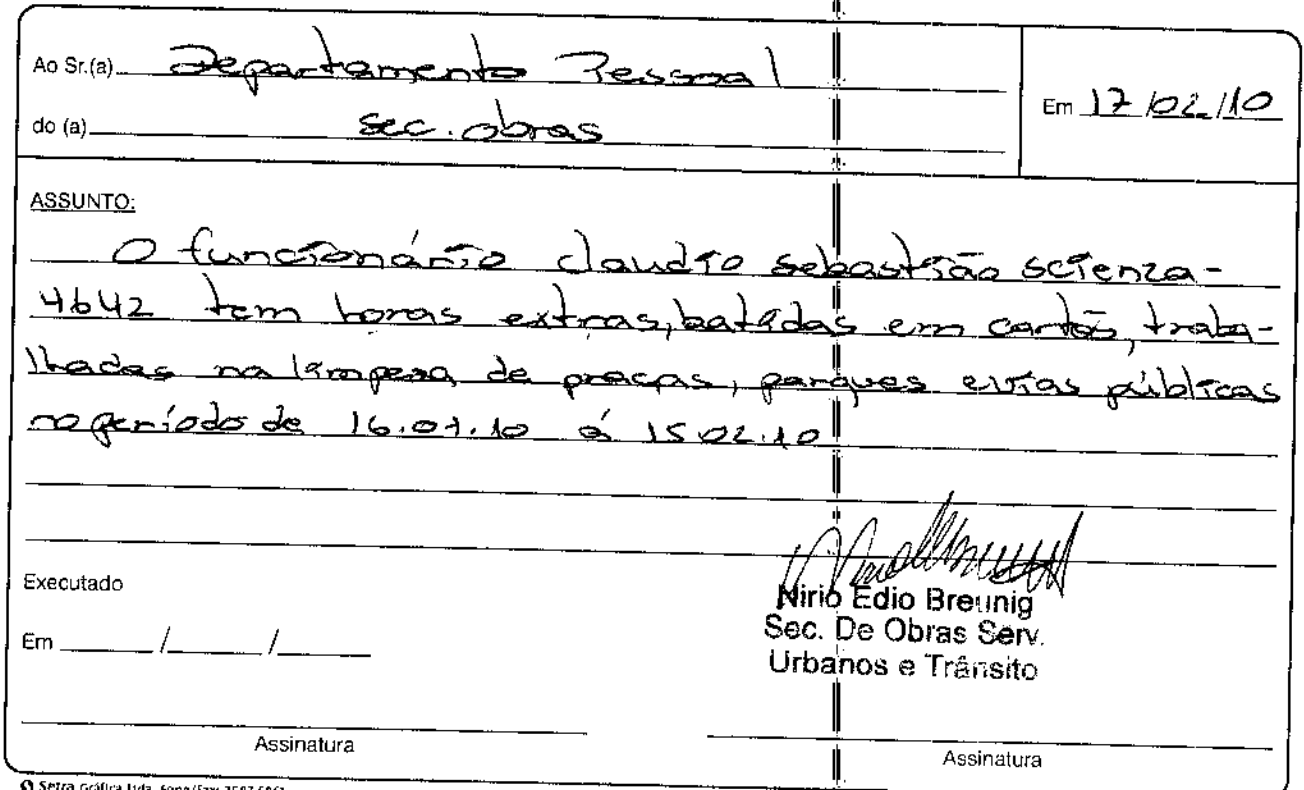 Ao Sr.(a) Departamento Pessoal
Em 17/02/10
do (a) Sec. obras
ASSUNTO:
O funcionário claudio sebastião scienza -
4642 tem horas extras, batidas em cartão, traba-
lhadas na limpeza de praças, parques e vias públicas
no período de 16.01.10 á 15.02.10
Executado
Nirio Edio Breunig
Sec. De Obras Serv.
Urbanos e Trânsito
Em ____/____/____
Assinatura
Assinatura
Setra Gráfica Ltda. Fone/Fax: